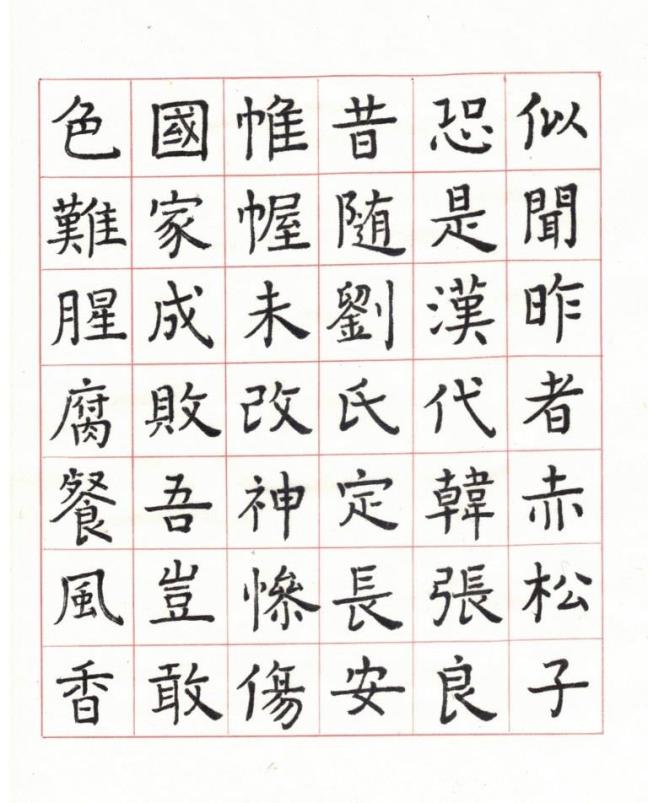 似聞昨者赤松子
恐是漢代韓張良
昔随劉氏定長安
帷幄未改神慘傷
國家成敗吾豈敢
色難腥腐餐風香